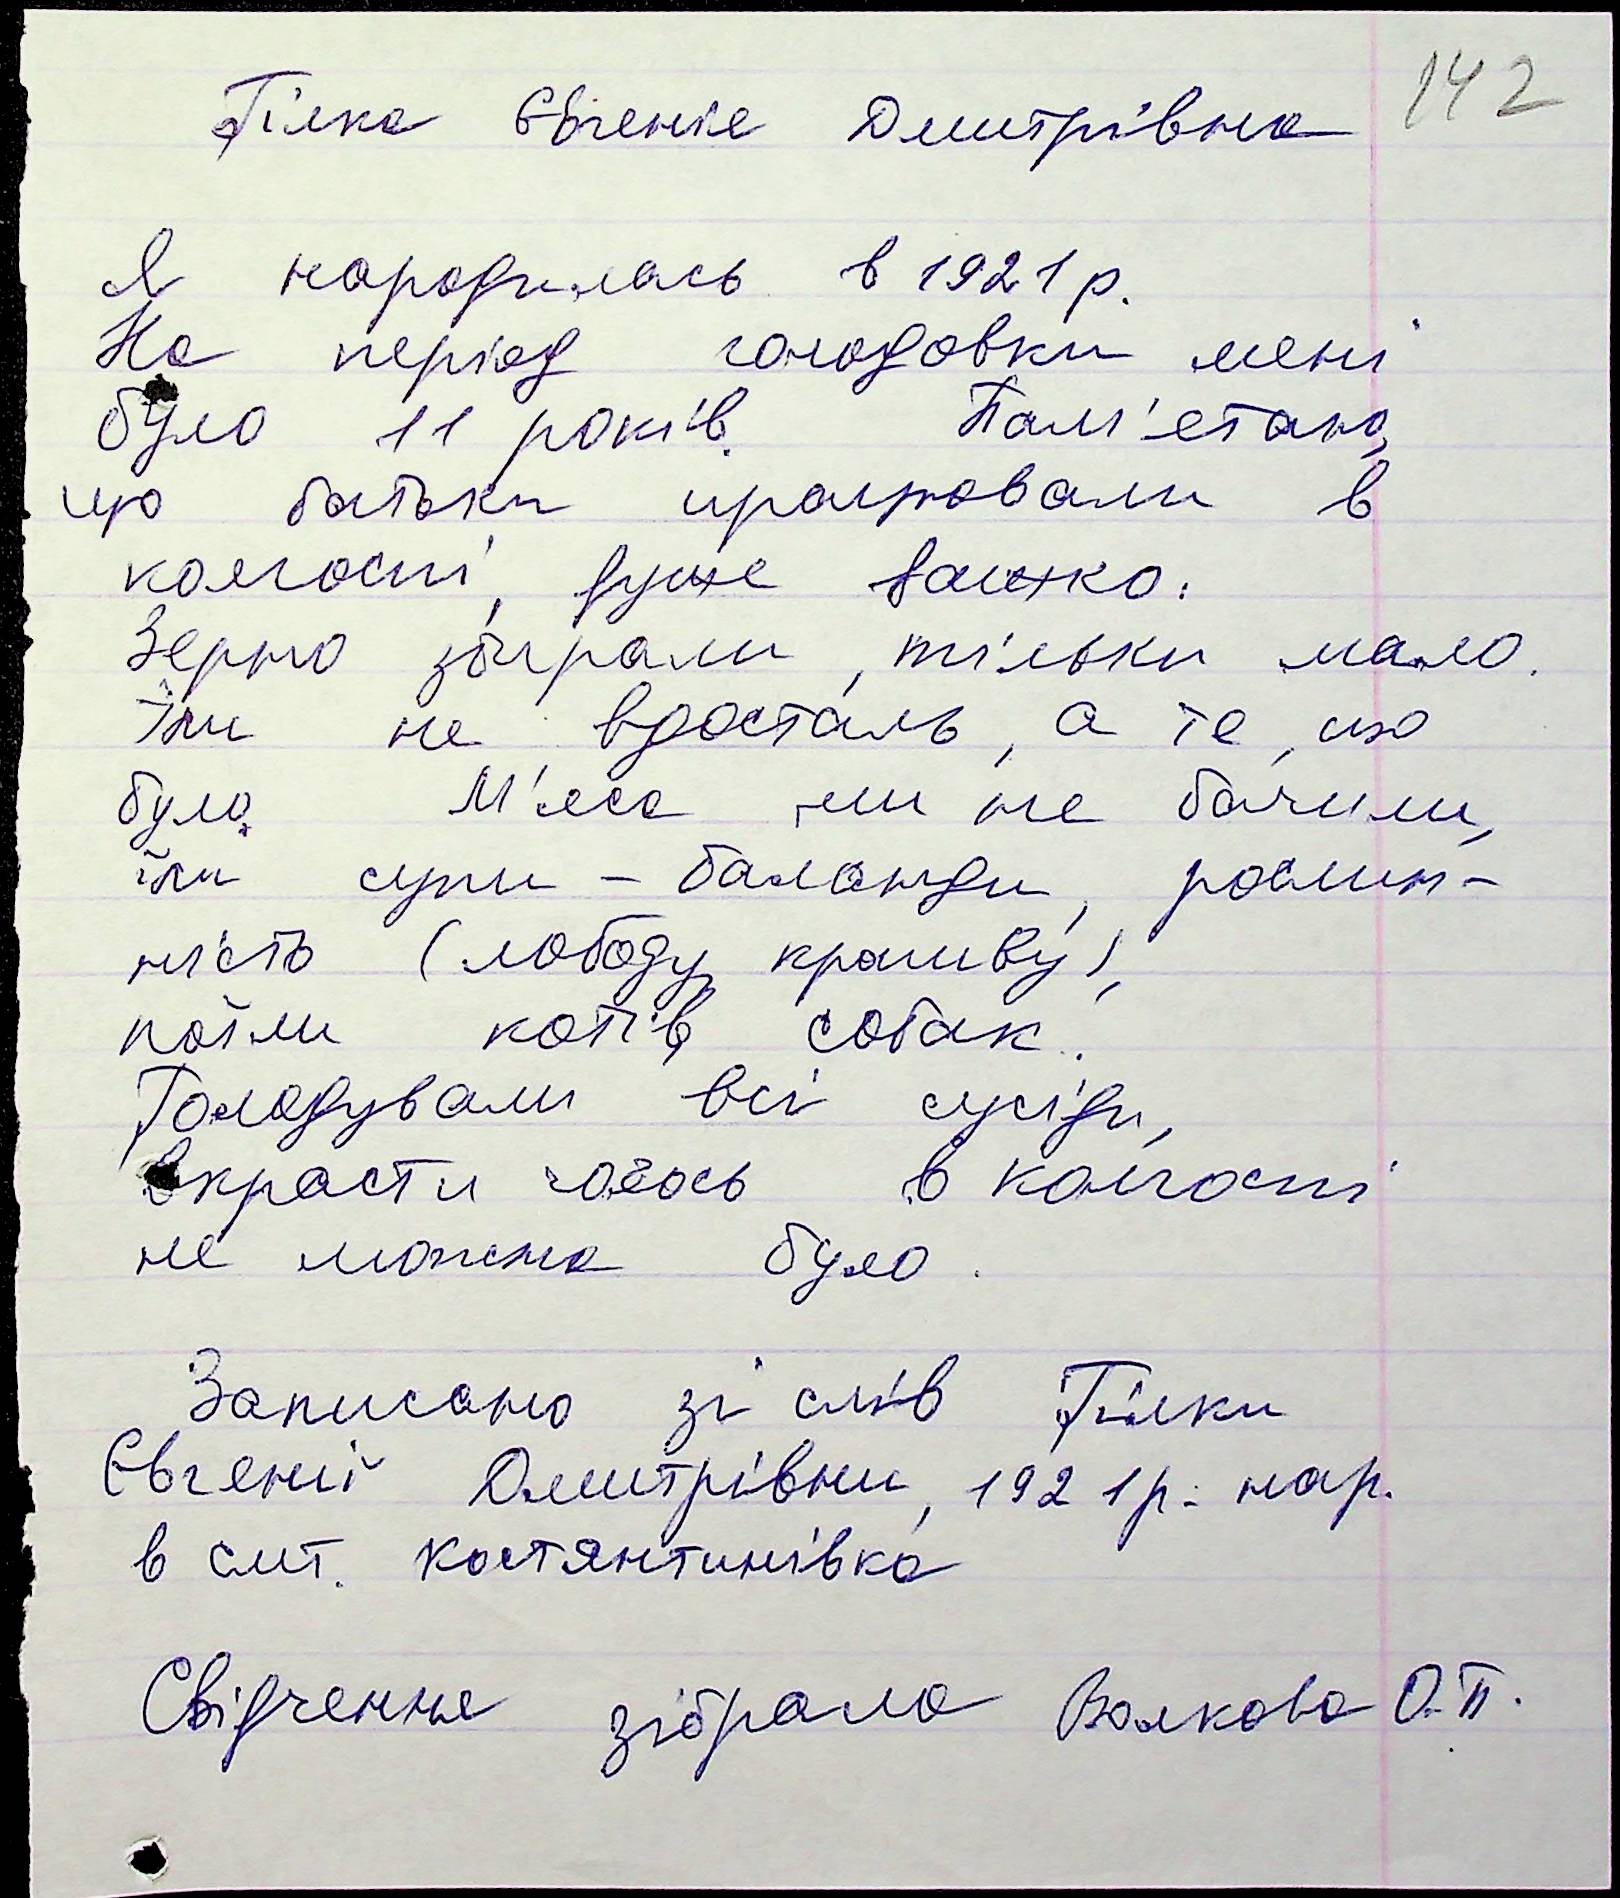 142
Гілка Євгенія Дмитрівна
Я народилась в 1921 р.
На період голодовки мені
було 11 років. Пам'ятаю,
що батьки працювали в
колгоспі, дуже важко.
Зерно збирали, тільки мало.
Їли не вдосталь, а те, що
було. М'яса ми не бачили,
їли супи - баланди, рослин-
ність (лободу, крапиву),
поїли котів, собак.
Голодували всі сусіди,
вкрасти чогось в колгоспі
не можна було.
Записано зі слів Гілки
Євгенії Дмитрівни, 1921 р. нар.
в смт. Костянтинівка
Свідчення зібрала Волкова О.П.